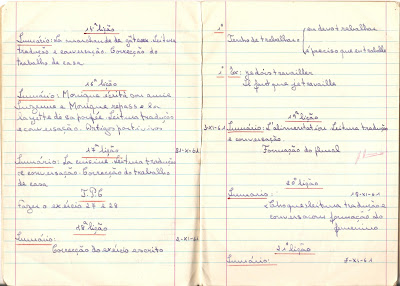 15ª lição
Sumário: La marchande de gâteaux. Leitura
tradução e conversação. Correcção do
trabalho de casa
16ª lição
Sumário: Monique écrit à son amie
Suzanne e Monique repasse
de sa poupée. Leitura tradução
e conversação.
17ª lição
31-X-61
Sumário: La cuisine. Leitura tradução
e conversação. Correcção do trabalho
de casa
T.P.C
Fazer o exercício 27 e 28
18ª lição
Sumário: 2-XI-61
Correcção do exercício escrito
1º eu devo trabalhar
Tenho de trabalhar
é preciso que eu trabalhe
1º Ex: je dois travailler
il faut que je travaille
19ª lição
3-XI-61 Sumário: L'alimentation. Leitura tradução
e conversação
Formação do plural
20ª lição
Sumário:
Leitura tradução e
conversação formação do
feminino
21ª lição
Sumário: